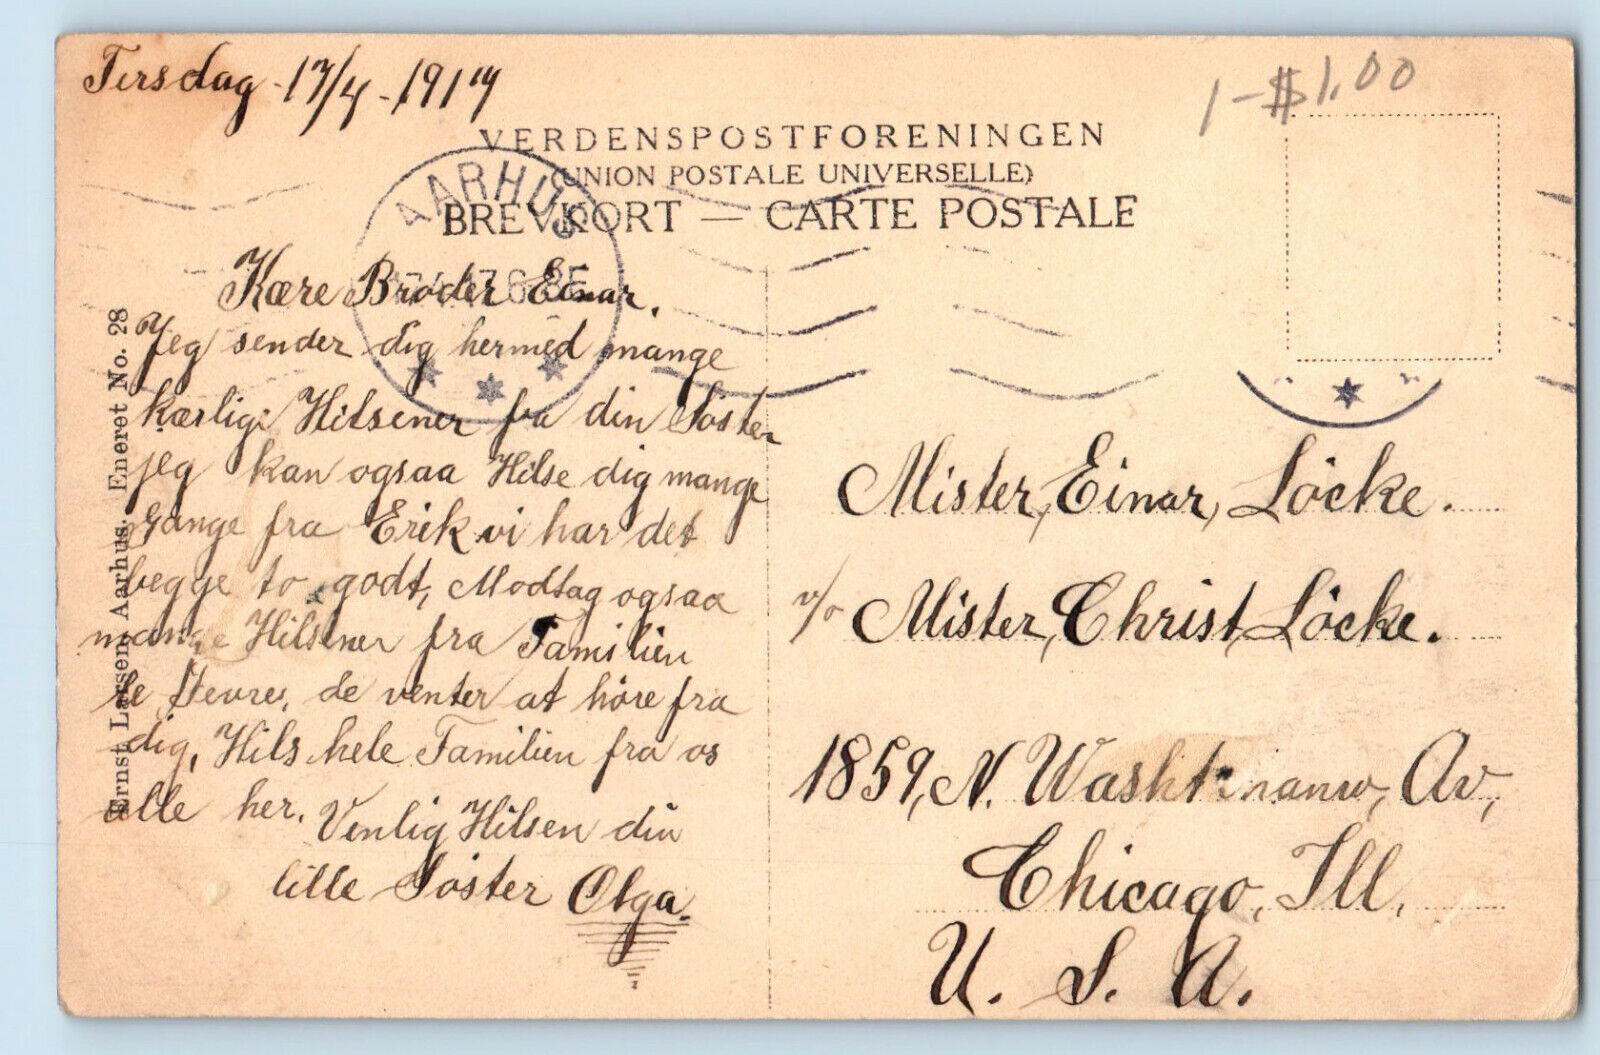 Tirsdag 17/4-1917
1-$1.00
VERDENSPOSTFORENINGEN
(UNION POSTALE UNIVERSELLE)
BREVKORT — CARTE POSTALE
AARHUS
Kære Broder Einar.
Jeg sender dig hermed mange
kærlige Hilsener fra din Söster
jeg kan ogsaa Hilse dig mange
Gange fra Erik vi har det
begge to godt, Modtag ogsaa
mange Hilsener fra Familien
le Fevre, de venter at höre fra
dig, Hils hele Familien fra os
alle her. Venlig Hilsen din
lille Söster Olga.
Ernst Larsen, Aarhus. Eneret No. 28
Mister, Einar, Löcke.
c/o Mister, Christ, Löcke.
1859, N. Av,
Chicago, Ill,
U. S. A.